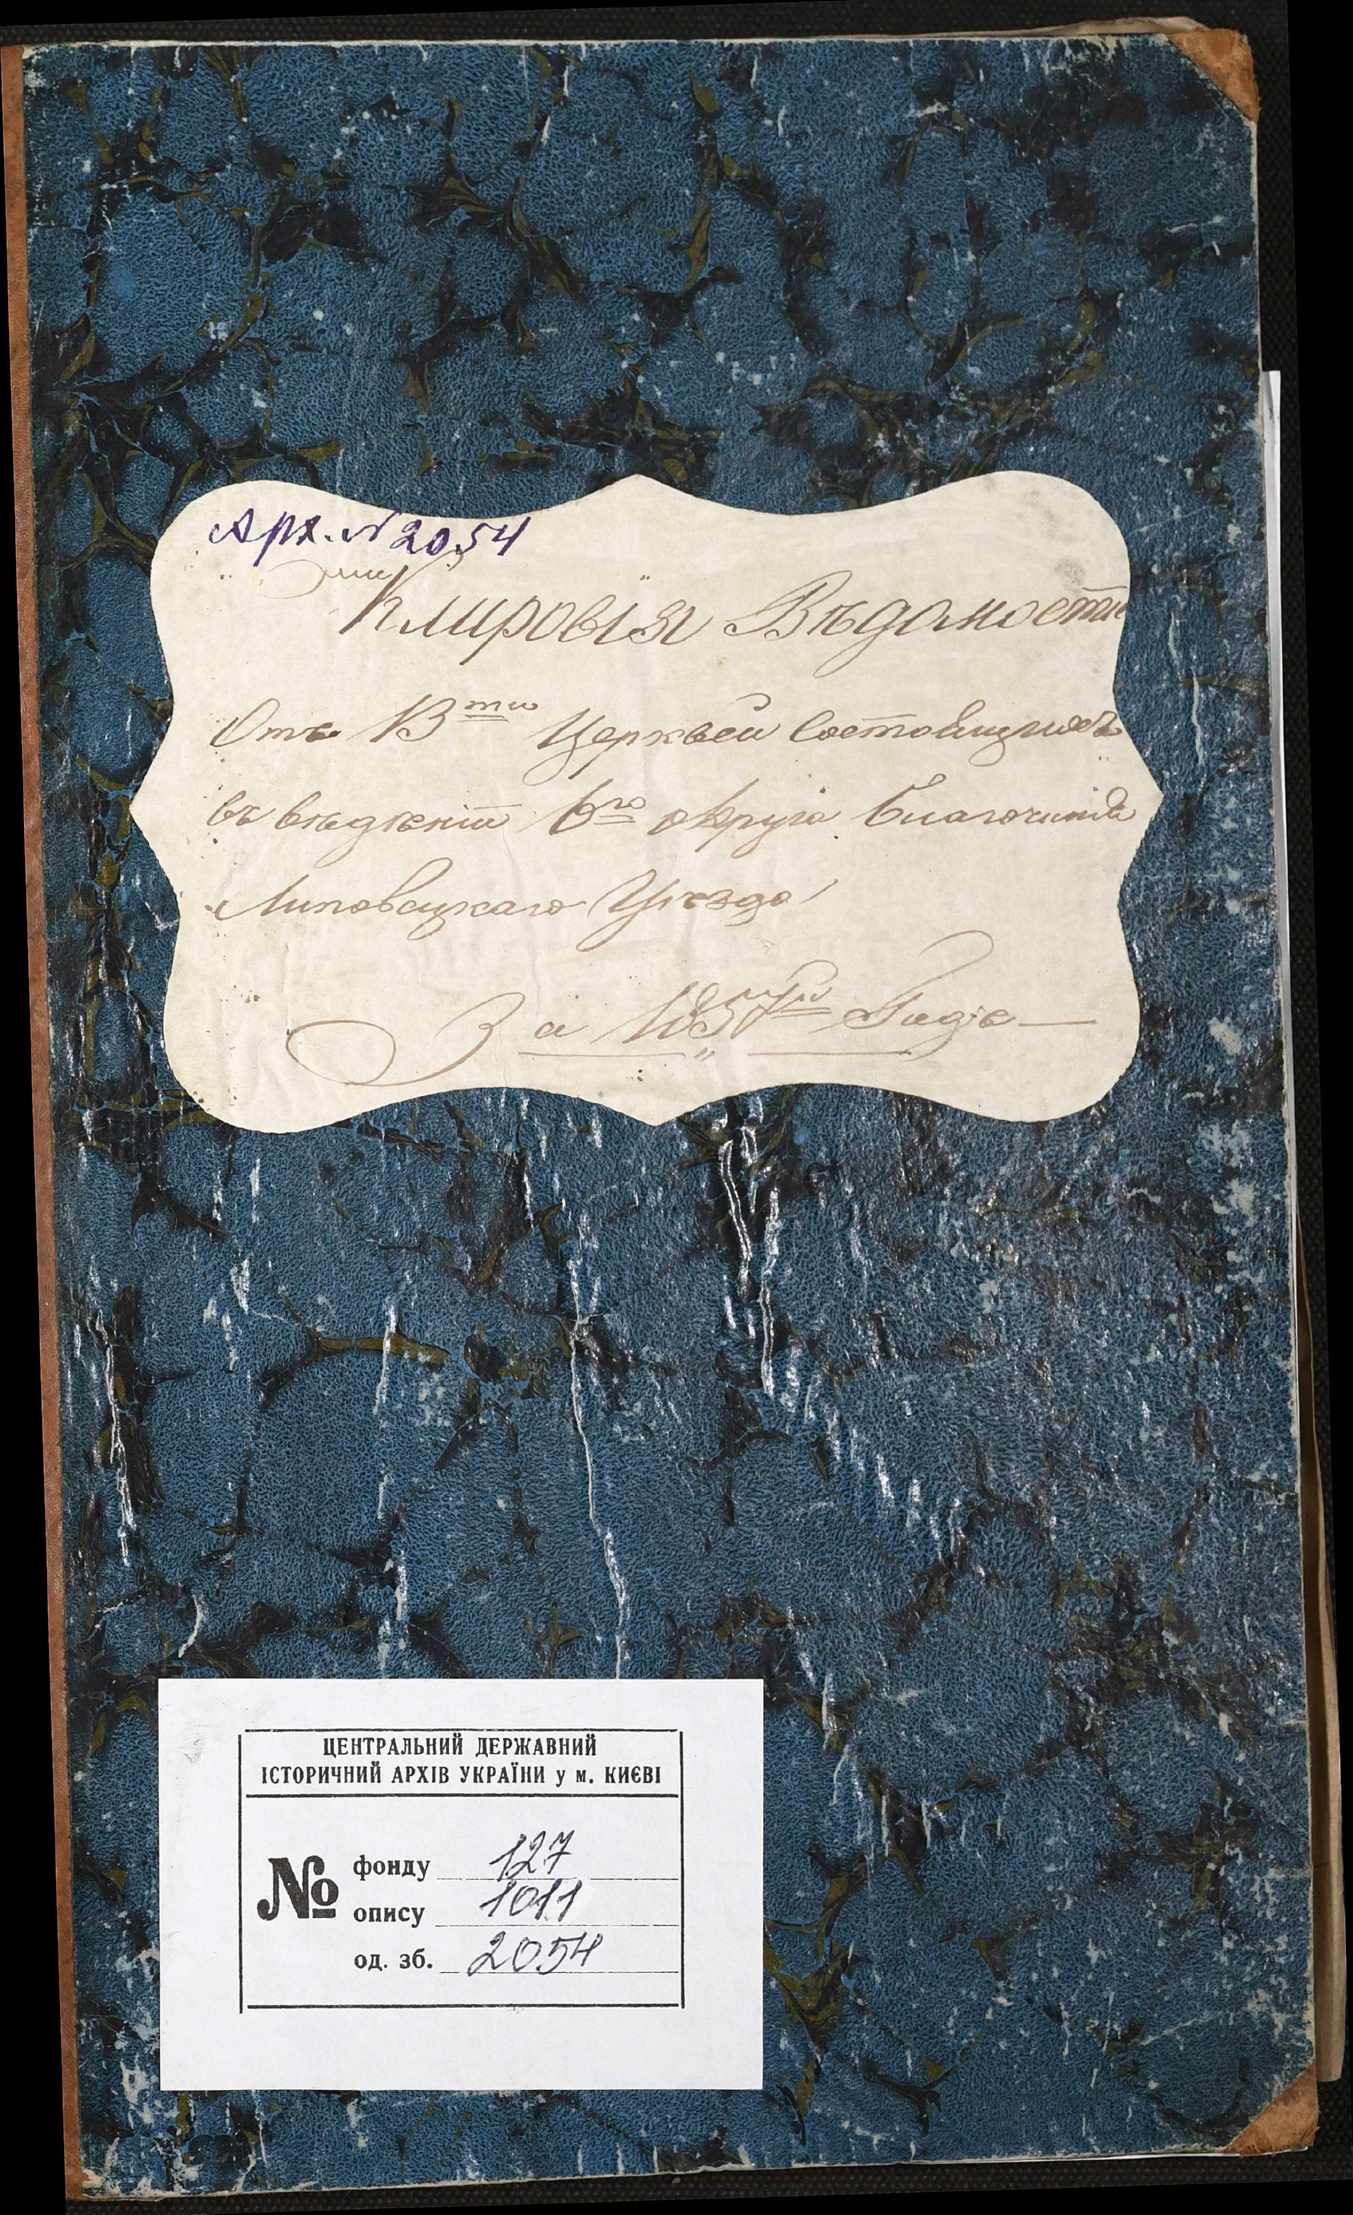 Арх. N 2054
Клировія Вѣдомости
Отъ 13ти Церквей Состоящихъ
въ вѣдѣніи 6го округа Благочинія
Липовецкаго Уѣзда
За 1857й Годъ
ЦЕНТРАЛЬНИЙ ДЕРЖАВНИЙ
ІСТОРИЧНИЙ АРХІВ УКРАЇНИ у м. КИЄВІ
№ фонду 127
опису 1011
од. зб. 2054